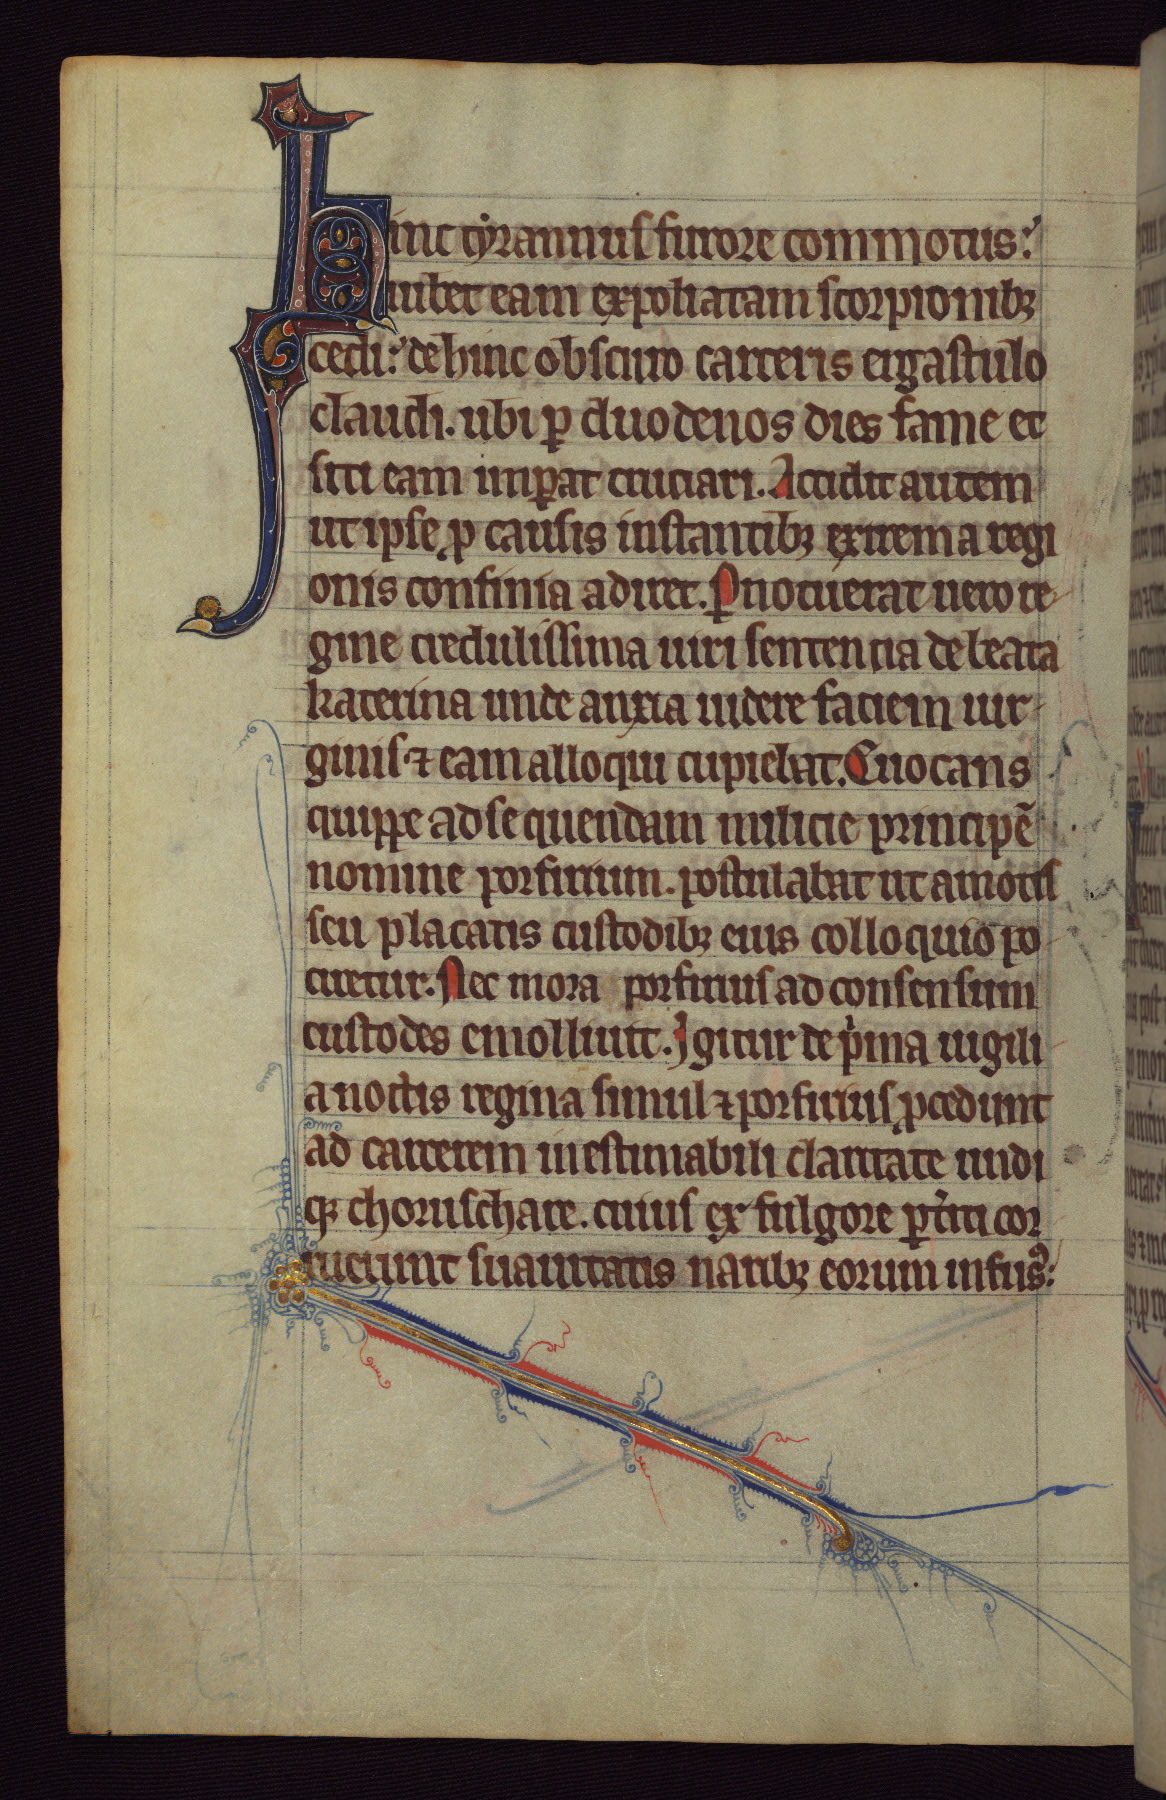 Hinc tyrannus furore commotus:
iubet eam expoliatam scorpionibꝫ
cedi: dehinc obscuro carceris ergastulo
claudi. ubi ꝑ duodenos dies fame et
siti eam imꝑat cruciari. Accidit autem
ut ipse ꝓ causis instantibꝫ extrema regi
onis confinia adiret. Pnotuerat uero re
gine credulissima uiri sentencia de beata
katerina unde anxia uidere faciem uir
ginis ⁊ eam alloqui cupiebat. Euocans
quippe ad se quendam milicie principē
nomine porfirium. postulabat ut amotis
seu placatis custodibꝫ eius colloquio po
tiretur. Nec mora porfirius ad consensum
custodes emolliuit. Igitur de pͥma uigili
a noctis regina simul ⁊ porfirius ꝓcedunt
ad carcerem inestimabili claritate undi
qꝫ choruschare. cuius ex fulgore ꝑtͥiti cor
ruciunt suauitatis naribꝫ eorum infusꝰ: